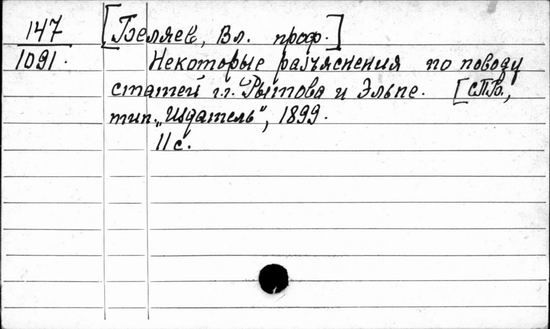 147 [Беляев, Вл. проф.]
1091. Некоторые разъяснения по поводу
статей г.г. Рытова и Эльпе. [СПб.,
тип. „Издатель", 1899.
11 с.